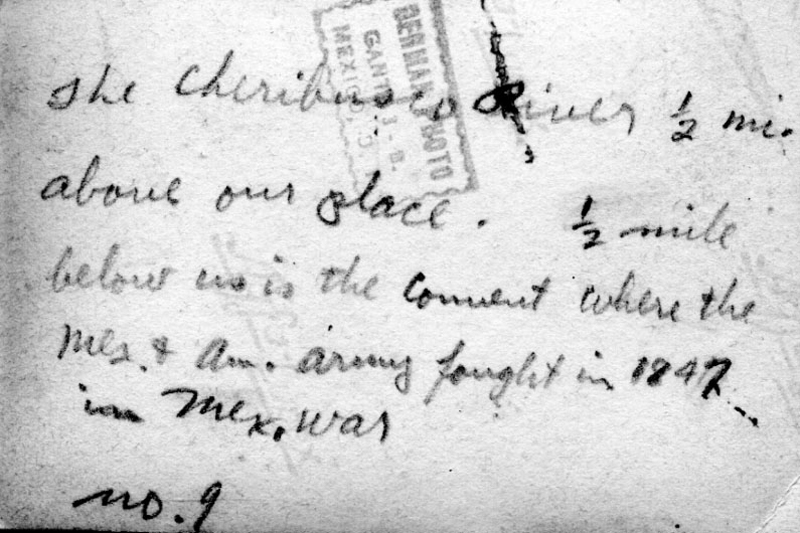 BERMAN PHOTO
GANTE 1-B.
MEXICO, D
The Cheribusco River ½ mi.
above our place. ½ mile
below us is the Convent where the
Mex. & Am. army fought in 1847
in Mex. war
no. 9